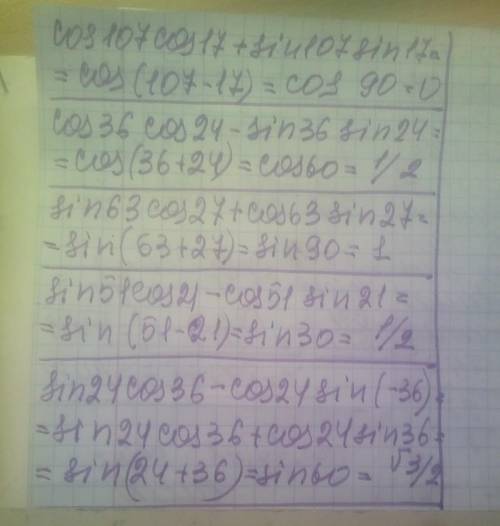 cos107cos17+sin107sin17=
=cos(107-17)=cos 90=0
cos36 cos24-sin36 sin24=
=cos(36+24)=cos60=1/2
sin63cos27+cos63sin27=
=sin(63+27)=sin90=1
sin51cos21-cos51 sin21=
=sin(51-21)=sin30=1/2
sin24cos36-cos24sin(-36)=
=sin24cos36+cos24sin36=
=sin(24+36)=sin60=√3/2